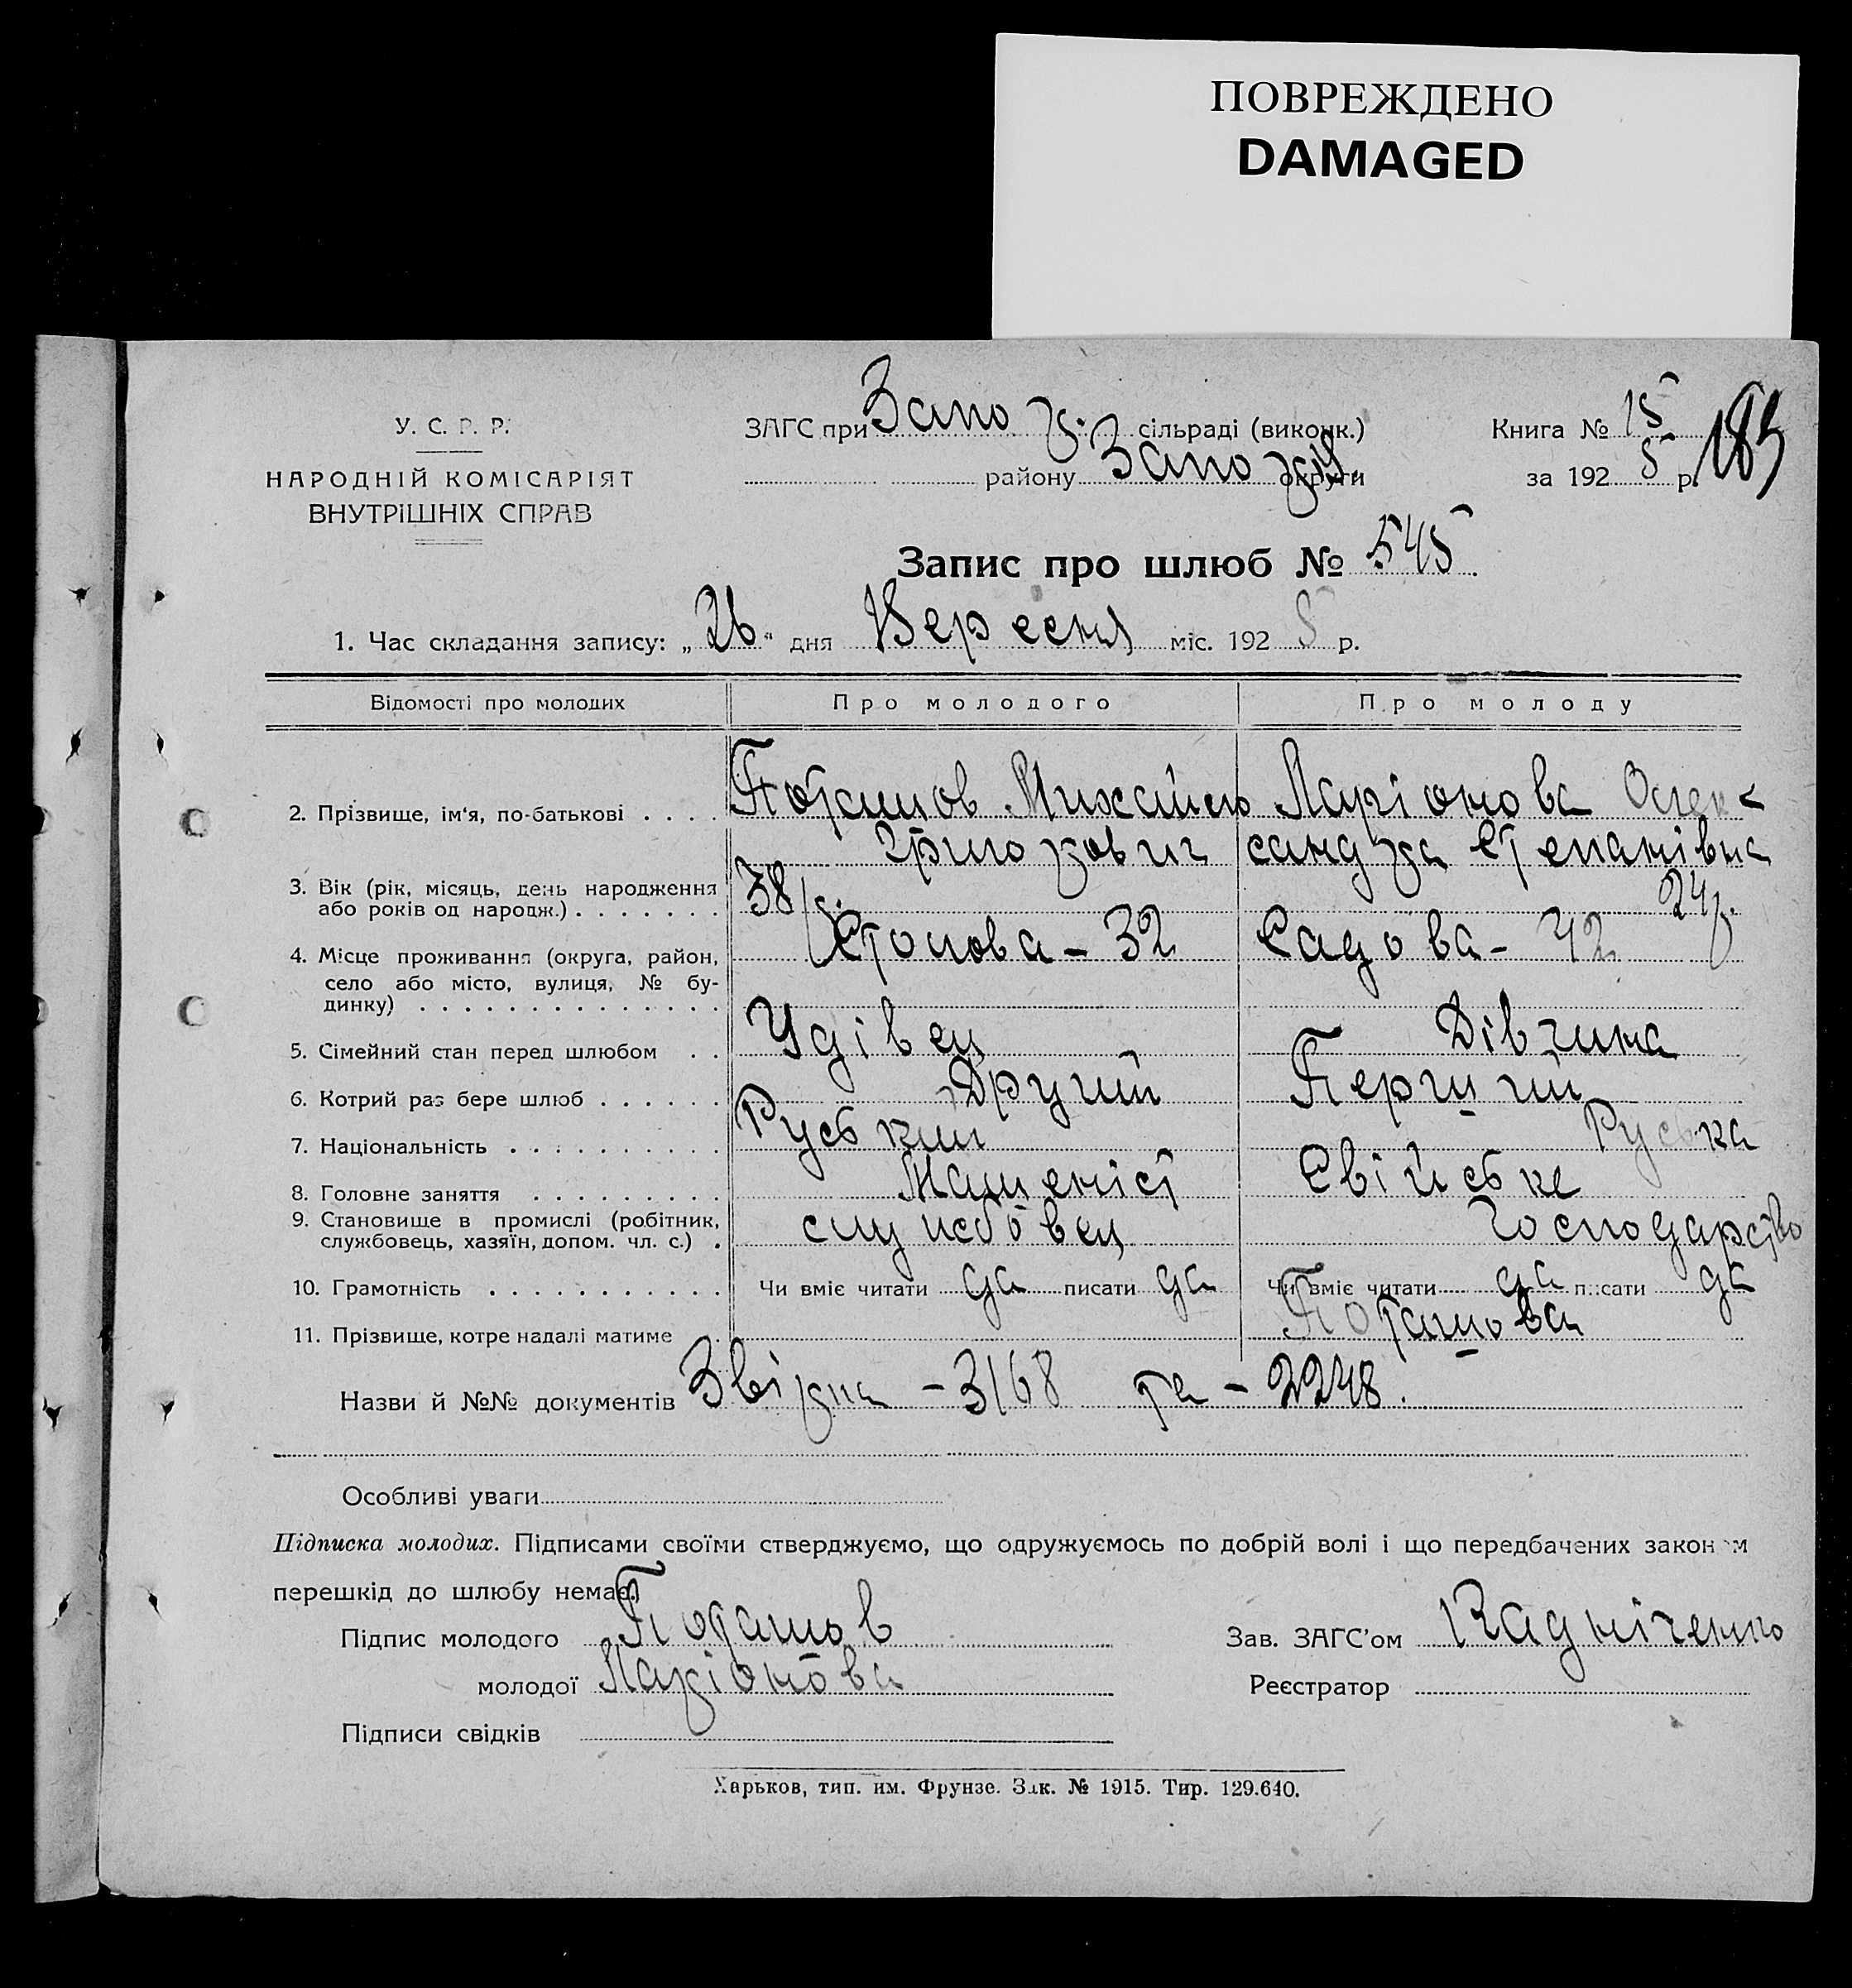 ПОВРЕЖДЕНО
DAMAGED
У. С. Р. Р.
НАРОДНІЙ КОМІСАРІЯТ
ВНУТРІШНІХ СПРАВ
ЗАГС при Запо сільраді (виконк.)
району Запо округи
Книга № 15
за 192 5 р.
Запис про шлюб № 545
1. Час складання запису: „26" дня Вересня міс. 192 5 р.
Відомості про молодих
Про молодого
Про молоду
2. Прізвище, ім'я, по-батькові . . . . Поташов Михайло Ларіонова Олек-
Григорович сандра Степанівна
3. Вік (рік, місяць, день народження 38 р. 24 р.
або років од народж.) . . . . . . .
4. Місце проживання (округа, район, Садова - 42
село або місто, вулиця, № бу-
динку) . . . . . . . . . . . . . .
5. Сімейний стан перед шлюбом . . Удівец Дівчина
6. Котрий раз бере шлюб . . . . . . Другий Перший
7. Національність . . . . . . . . . . Руський Руська
8. Головне заняття . . . . . . . . . Машеніст Свійське
9. Становище в промислі (робітник, службовец Господарство
службовець, хазяїн, допом. чл. с.) .
10. Грамотність . . . . . . . . . . . Чи вміє читати да писати да Чи вміє читати да писати да
11. Прізвище, котре надалі матиме . Поташова
Назви й №№ документів Звірка - 3168 та - 2248.
Особливі уваги
Підписка молодих. Підписами своїми стверджуємо, що одружуємось по добрій волі і що передбачених законом
перешкід до шлюбу немає.
Підпис молодого Поташов
молодої Ларіонова
Підписи свідків
Зав. ЗАГС'ом Кадніченко
Реєстратор
Харьков, тип. им. Фрунзе. Зак. № 1915. Тир. 129.640.